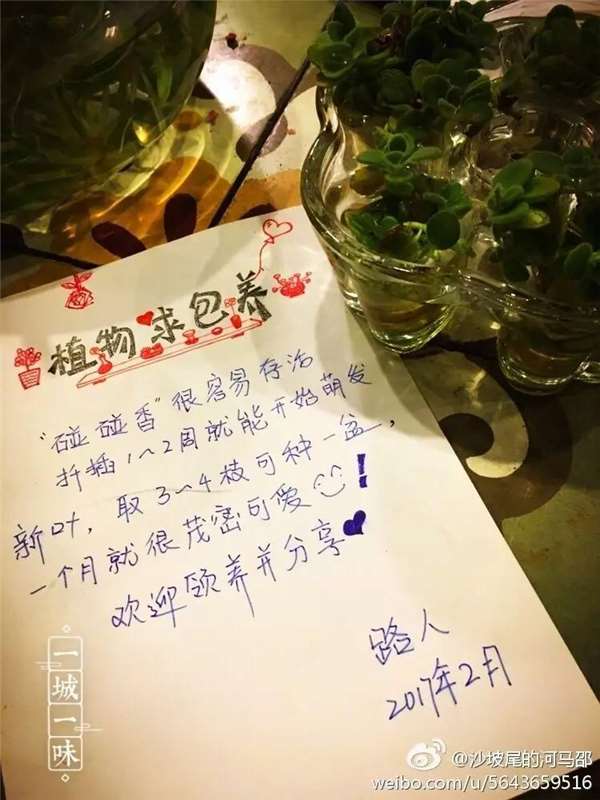 植物求包养
"碰碰香"很容易存活
扦插1~2周就能开始萌发
新叶，取3~4枝可种一盆，
一个月就很茂密可爱！
欢迎领养并分享
路人
2017年2月
一城一味
@沙坡尾的河马邵
weibo.com/u/5643659516